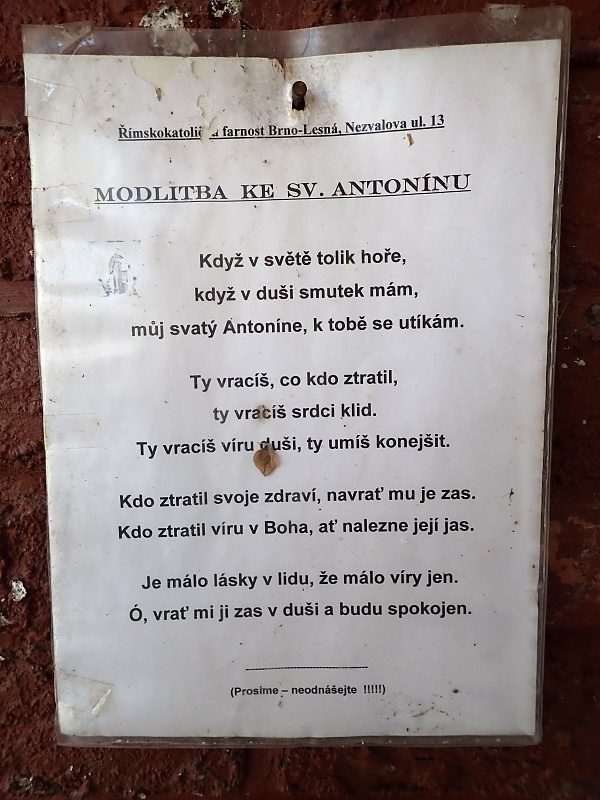 Římskokatolic farnost Brno-Lesná, Nezvalova ul. 13
MODLITBA KE SV. ANTONÍNU
Když v světě tolik hoře,
když v duši smutek mám,
můj svatý Antoníne, k tobě se utíkám.
Ty vracíš, co kdo ztratil,
ty vracíš srdci klid.
Ty vracíš víru duši, ty umíš konejšit.
Kdo ztratil svoje zdraví, navrať mu je zas.
Kdo ztratil víru v Boha, ať nalezne její jas.
Je málo lásky v lidu, že málo víry jen.
Ó, vrať mi ji zas v duši a budu spokojen.
(Prosíme – neodnášejte !!!!!)